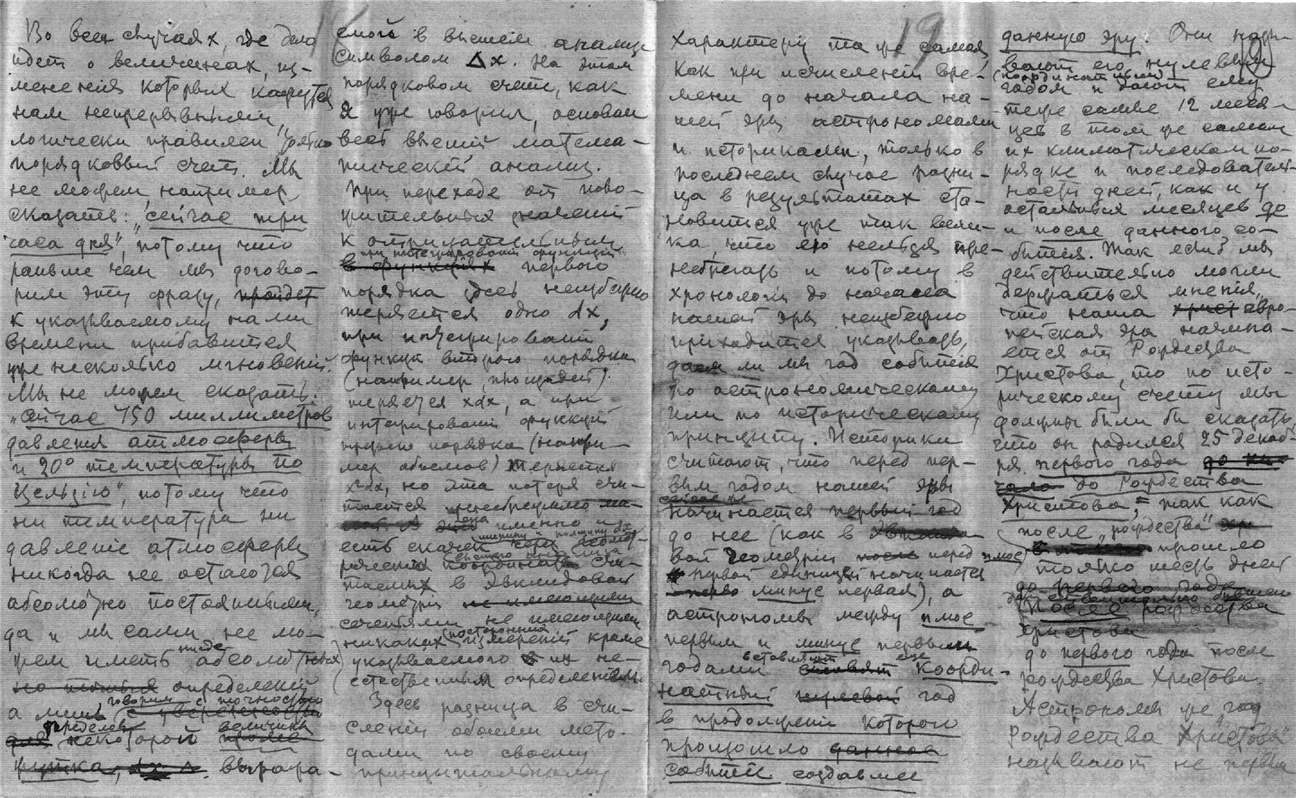 Во всех случаях, где дело
идет о величинах, из-
менения которых кажутся
нам непрерывными,
логически правилен только
порядковый счет. Мы
не можем, например
сказать: "сейчас три
часа дня", потому что
раньше чем мы догово-
рим эту фразу, пройдет
к указываемому нами
времени прибавится
уже несколько мгновений.
Мы не можем сказать:
"сейчас 750 миллиметров
давления атмосферы
и 20° температуры по
Цельзию", потому что
ни температура ни
давление атмосферы
никогда не остаются
абсолютно постоянными,
да и мы сами не мо-
жем иметь нигде абсолютных
определений
а лишь говорим с точностью
пределах величины
некоторой
выража-
емой в высшем анализе
символом Δx. На этом
порядковом счете, как
я уже говорил, основан
весь высший матема-
тический анализ.
При переходе от поло-
жительных значений
к отрицательным
при интегрировании функций
в функциях первого
порядка здесь неизбежно
теряется одно dx,
при интегрировании
функций второго порядка
(например, площадей)
теряется xdx, а при
интегрировании функций
третьего порядка (напри-
мер объемов) теряется
x²dx, но эта потеря счи-
тается
именно
есть скачек
счи-
таемых в Эвклидовой
геометрии не имеющими
сочетаний не имеющими
никаких посторонних измерений кроме
указываемого в их не-
естественным определением.
Здесь разница в счи-
слении обоими мето-
дами по своему
принципиальному
19
характеру та же самая,
как при исчислении вре-
мени до начала на-
шей эры астрономами
и историками, только в
последнем случае разни-
ца в результатах ста-
новится уже так вели-
ка, что ею нельзя пре-
небрегать и потому в
хронологии до начала
нашей эры неизбежно
приходится указывать,
даем ли мы год события
по астрономическому
или по историческому
принципу. Историки
считают, что перед пер-
вым годом нашей эры
начинается первый год
до нее (как в Эвклидо-
вой геометрии после перед плюс
первой единицей начинается
минус первая), а
астрономы между плюс
первым и минус первым
годами вставляют еще коорди-
натный нулевой год
в продолжении которого
прошло данное
событие создавшее
данную эру. Они назы-
вают его нулевым
координатным
годом и дают ему
те же самые 12 меся-
цев в том же самом
их климатическом по-
рядке и последователь-
ности дней, как и у
остальных месяцев до
и после данного со-
бытия. Так если б мы
действительно могли
держаться мнения,
что наша христ евро-
пейская эра начина-
ется от Рождества
Христова, то по исто-
рическому счету мы
должны были бы сказать,
что он родился 25 декаб-
ря первого года до на-
чала до Рождества
Христова, так как
после "рождества"
прошло
только шесть дней
до первого года
После рождества
Христова
до первого года после
рождества Христова.
Астрономы же год
рождества Христова
называют не первым